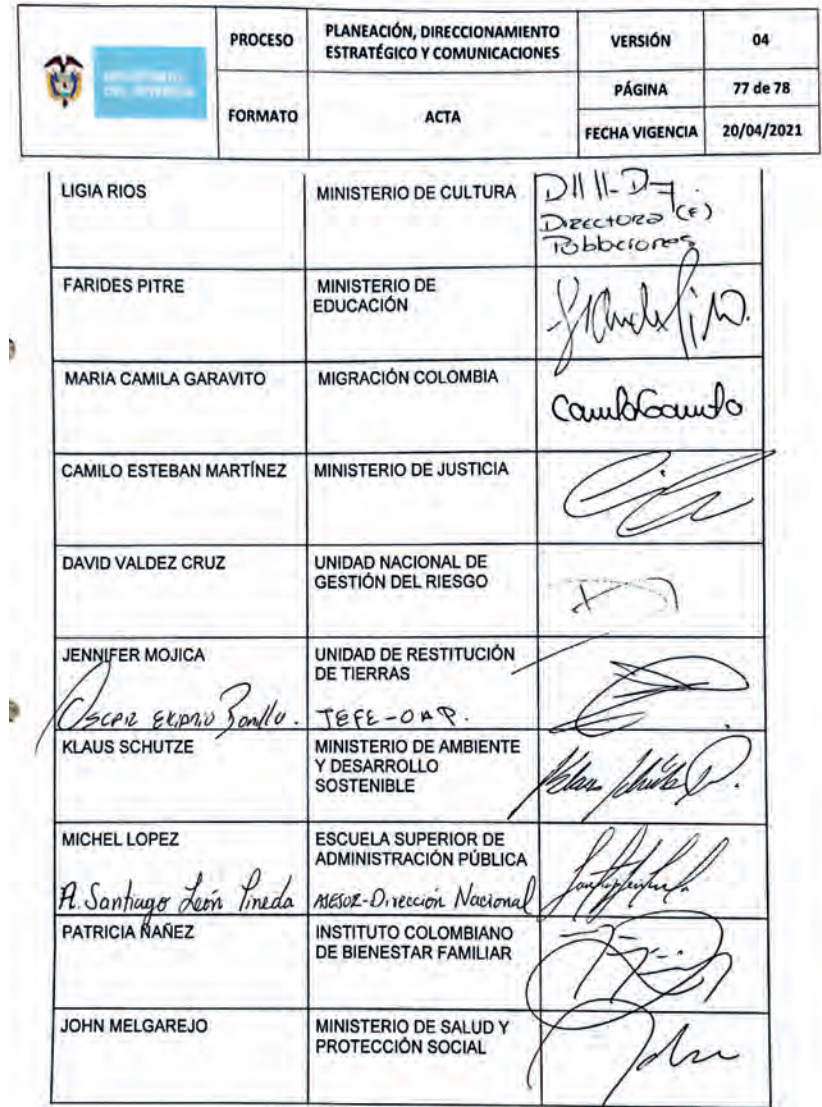 PROCESO
PLANEACIÓN, DIRECCIONAMIENTO
ESTRATÉGICO Y COMUNICACIONES
VERSIÓN
04
FORMATO
ACTA
PÁGINA
77 de 78
FECHA VIGENCIA
20/04/2021
LIGIA RIOS
MINISTERIO DE CULTURA
Directora (E)
Poblaciones
FARIDES PITRE
MINISTERIO DE
EDUCACIÓN
MARIA CAMILA GARAVITO
MIGRACIÓN COLOMBIA
CAMILO ESTEBAN MARTÍNEZ
MINISTERIO DE JUSTICIA
DAVID VALDEZ CRUZ
UNIDAD NACIONAL DE
GESTIÓN DEL RIESGO
JENNIFER MOJICA
UNIDAD DE RESTITUCIÓN
DE TIERRAS
JEFE-OAP.
KLAUS SCHUTZE
MINISTERIO DE AMBIENTE
Y DESARROLLO
SOSTENIBLE
MICHEL LOPEZ
ESCUELA SUPERIOR DE
ADMINISTRACIÓN PÚBLICA
A. Santiago León Pineda
ASESOR-Dirección Nacional
PATRICIA ÑAÑEZ
INSTITUTO COLOMBIANO
DE BIENESTAR FAMILIAR
JOHN MELGAREJO
MINISTERIO DE SALUD Y
PROTECCIÓN SOCIAL